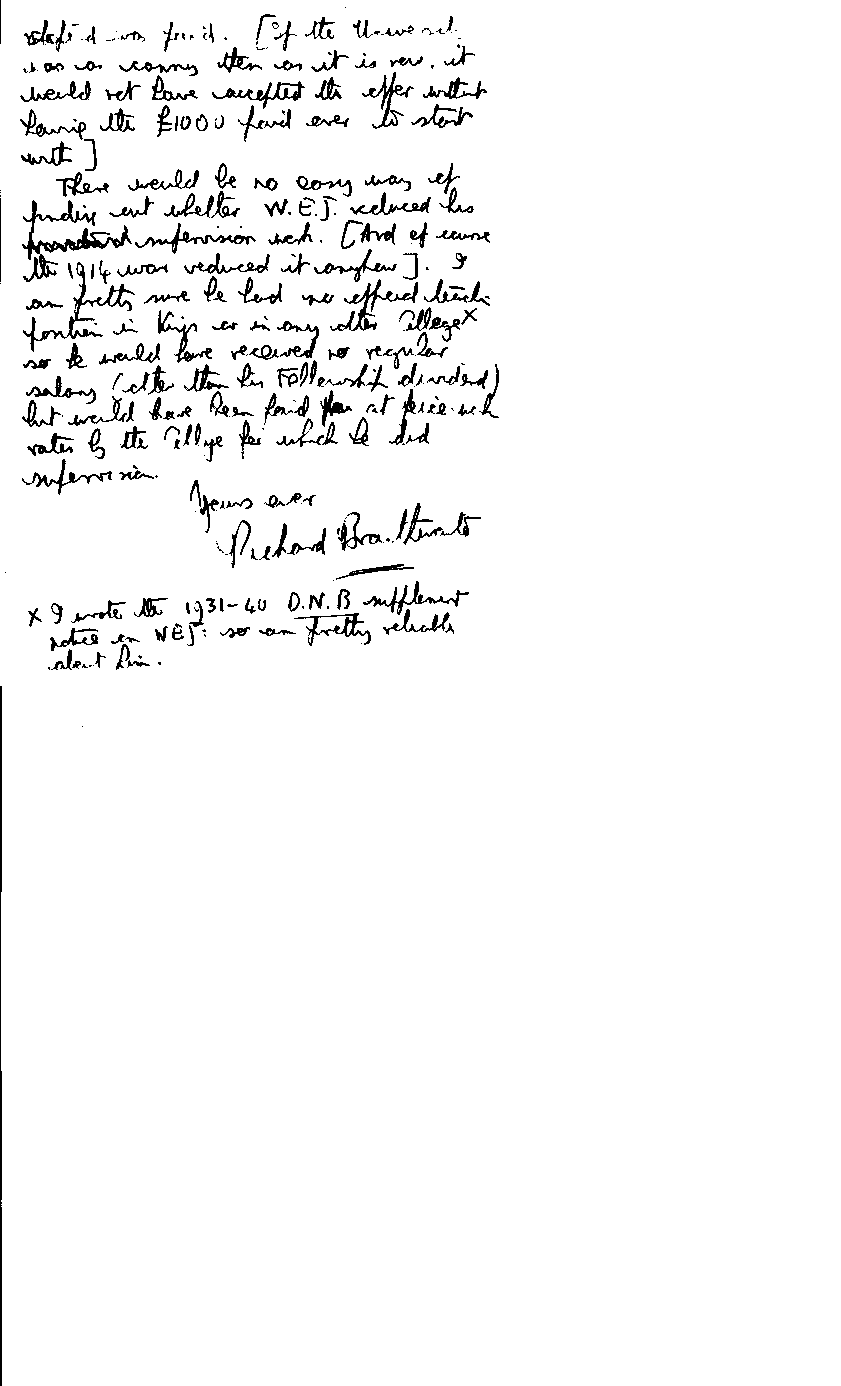 was paid. [If the University
was as canny then as it is now, it
would not have accepted the offer without
having the £1000 paid over to start
with]
There would be no easy way of
finding out whether W.E.J. reduced his
supervision work. [And of course
the 1914 war reduced it anyhow]. I
am pretty sure he had no official teaching
position in Kings or in any other College x
so he would have received no regular
salary (other than his Fellowship dividend)
but would have been paid at piece-work
rates by the College for which he did
supervision.
Yours ever
Richard Braithwaite
x I wrote the 1931-40 D.N.B supplement
notice on WEJ: so am pretty reliable
about him.